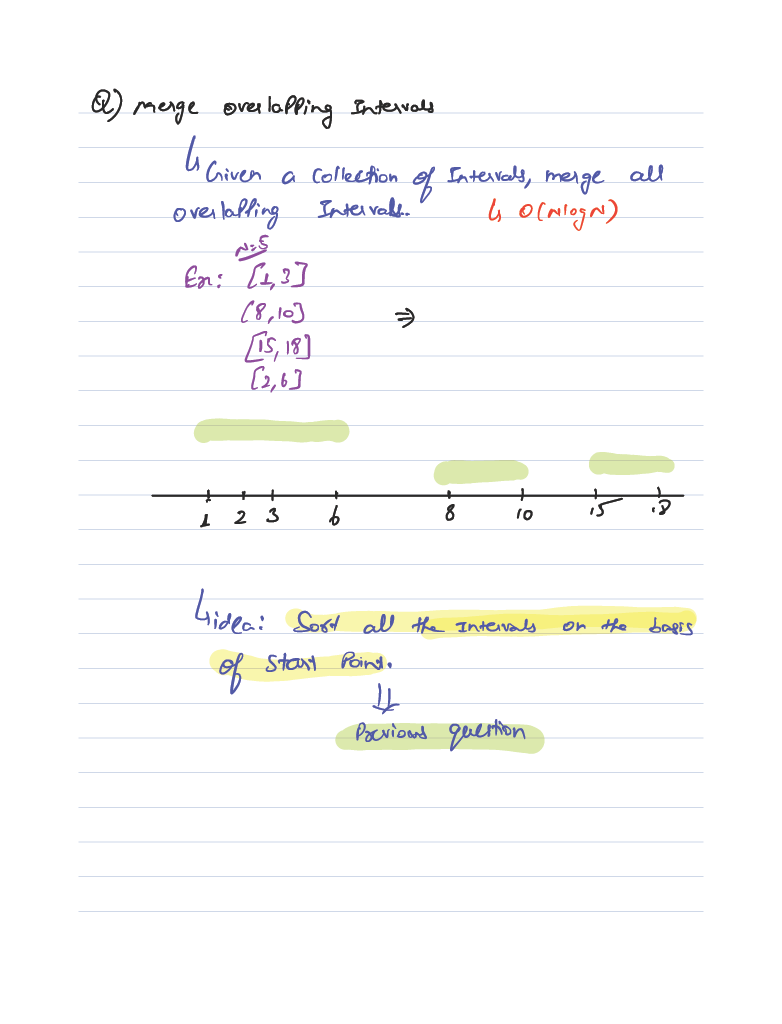 Q) Merge overlapping Intervals
↳ Given a Collection of Intervals, merge all
overlapping Intervals. ↳ O(NlogN)
N=5
Ex: [1,3]
[8,10] ⇒
[15,18]
[2,6]
1 2 3 6 8 10 15 18
↳ idea: Sort all the Intervals on the basis
of Start Point.
⇓
Previous question